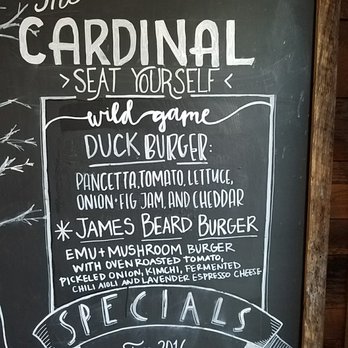 The
CARDINAL
>SEAT YOURSELF<
wild game
DUCK BURGER:
PANCETTA, TOMATO, LETTUCE,
ONION·FIG JAM, AND CHEDDAR
* JAMES BEARD BURGER
EMU + MUSHROOM BURGER
WITH OVEN ROASTED TOMATO,
PICKELED ONION, KIMCHI, FERMENTED
CHILI AIOLI AND LAVENDER ESPRESSO CHEESE
SPECIALS
2016